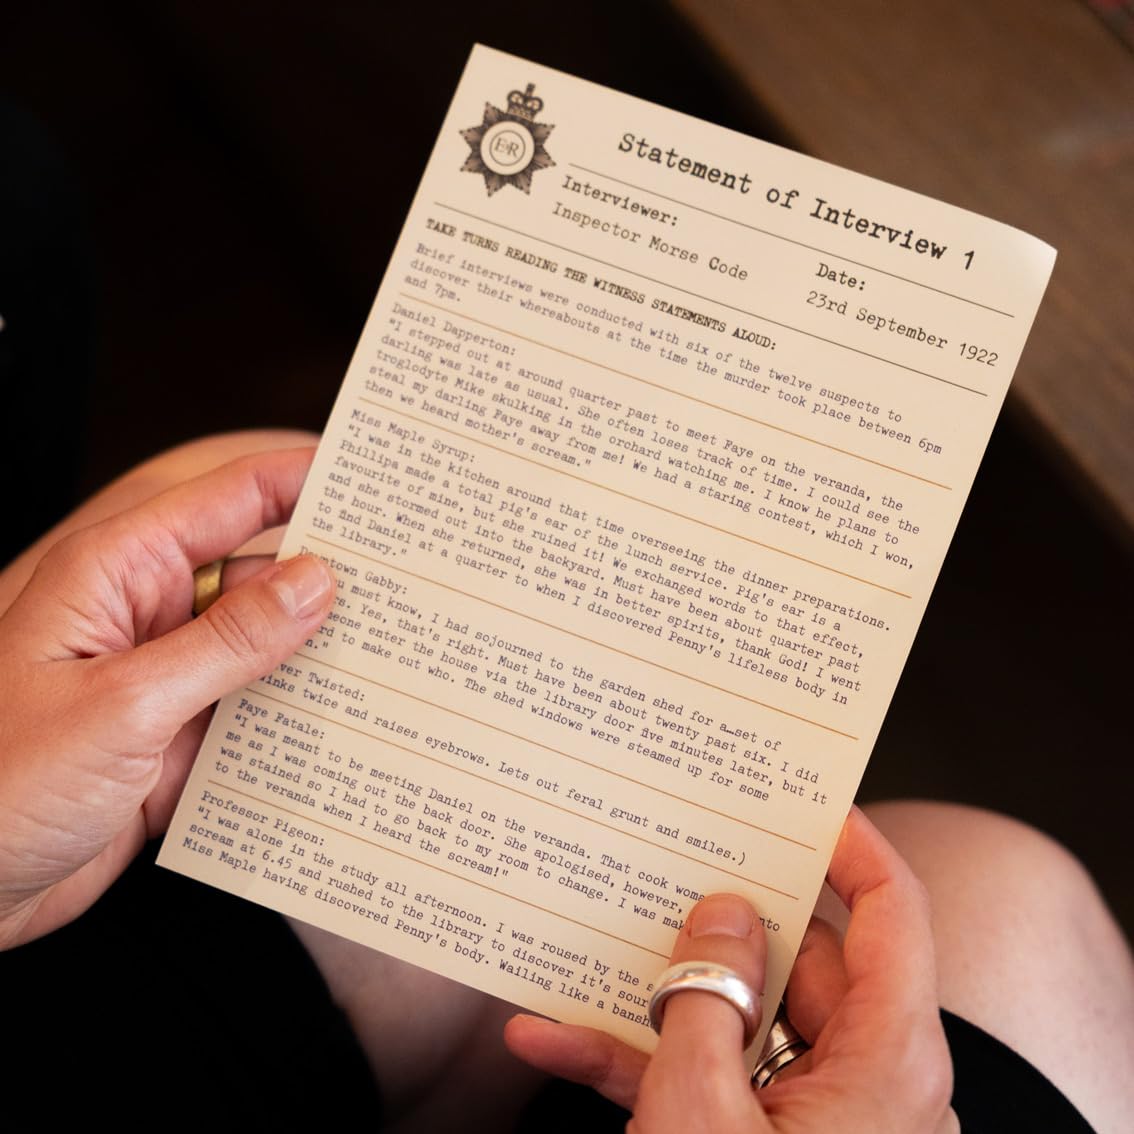 EiiR
Statement of Interview 1
Interviewer:
Inspector Morse Code
Date:
23rd September 1922
TAKE TURNS READING THE WITNESS STATEMENTS ALOUD:
Brief interviews were conducted with six of the twelve suspects to
discover their whereabouts at the time the murder took place between 6pm
and 7pm.
Daniel Dapperton:
"I stepped out at around quarter past to meet Faye on the veranda, the
darling was late as usual. She often loses track of time. I could see the
troglodyte Mike skulking in the orchard watching me. I know he plans to
steal my darling Faye away from me! We had a staring contest, which I won,
then we heard mother's scream."
Miss Maple Syrup:
"I was in the kitchen around that time overseeing the dinner preparations.
Phillipa made a total pig's ear of the lunch service. Pig's ear is a
favourite of mine, but she ruined it! We exchanged words to that effect,
and she stormed out into the backyard. Must have been about quarter past
the hour. When she returned, she was in better spirits, thank God! I went
to find Daniel at a quarter to when I discovered Penny's lifeless body in
the library."
town Gabby:
must know, I had sojourned to the garden shed for a…set of
Yes, that's right. Must have been about twenty past six. I did
enter the house via the library door five minutes later, but it
to make out who. The shed windows were steamed up for some
Twisted:
twice and raises eyebrows. Lets out feral grunt and smiles.)
Faye Fatale:
"I was meant to be meeting Daniel on the veranda. That cook
me as I was coming out the back door. She apologised, however,
was stained so I had to go back to my room to change. I was
to the veranda when I heard the scream!"
Professor Pigeon:
"I was alone in the study all afternoon. I was roused by the
scream at 6.45 and rushed to the library to discover it's
Miss Maple having discovered Penny's body. Wailing like a